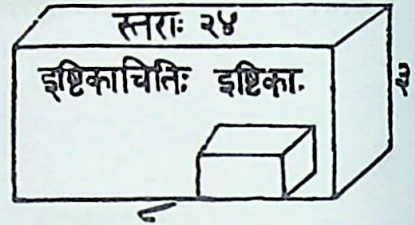 स्तराः २४
इष्टिकाचितिः इष्टिका.
३
८